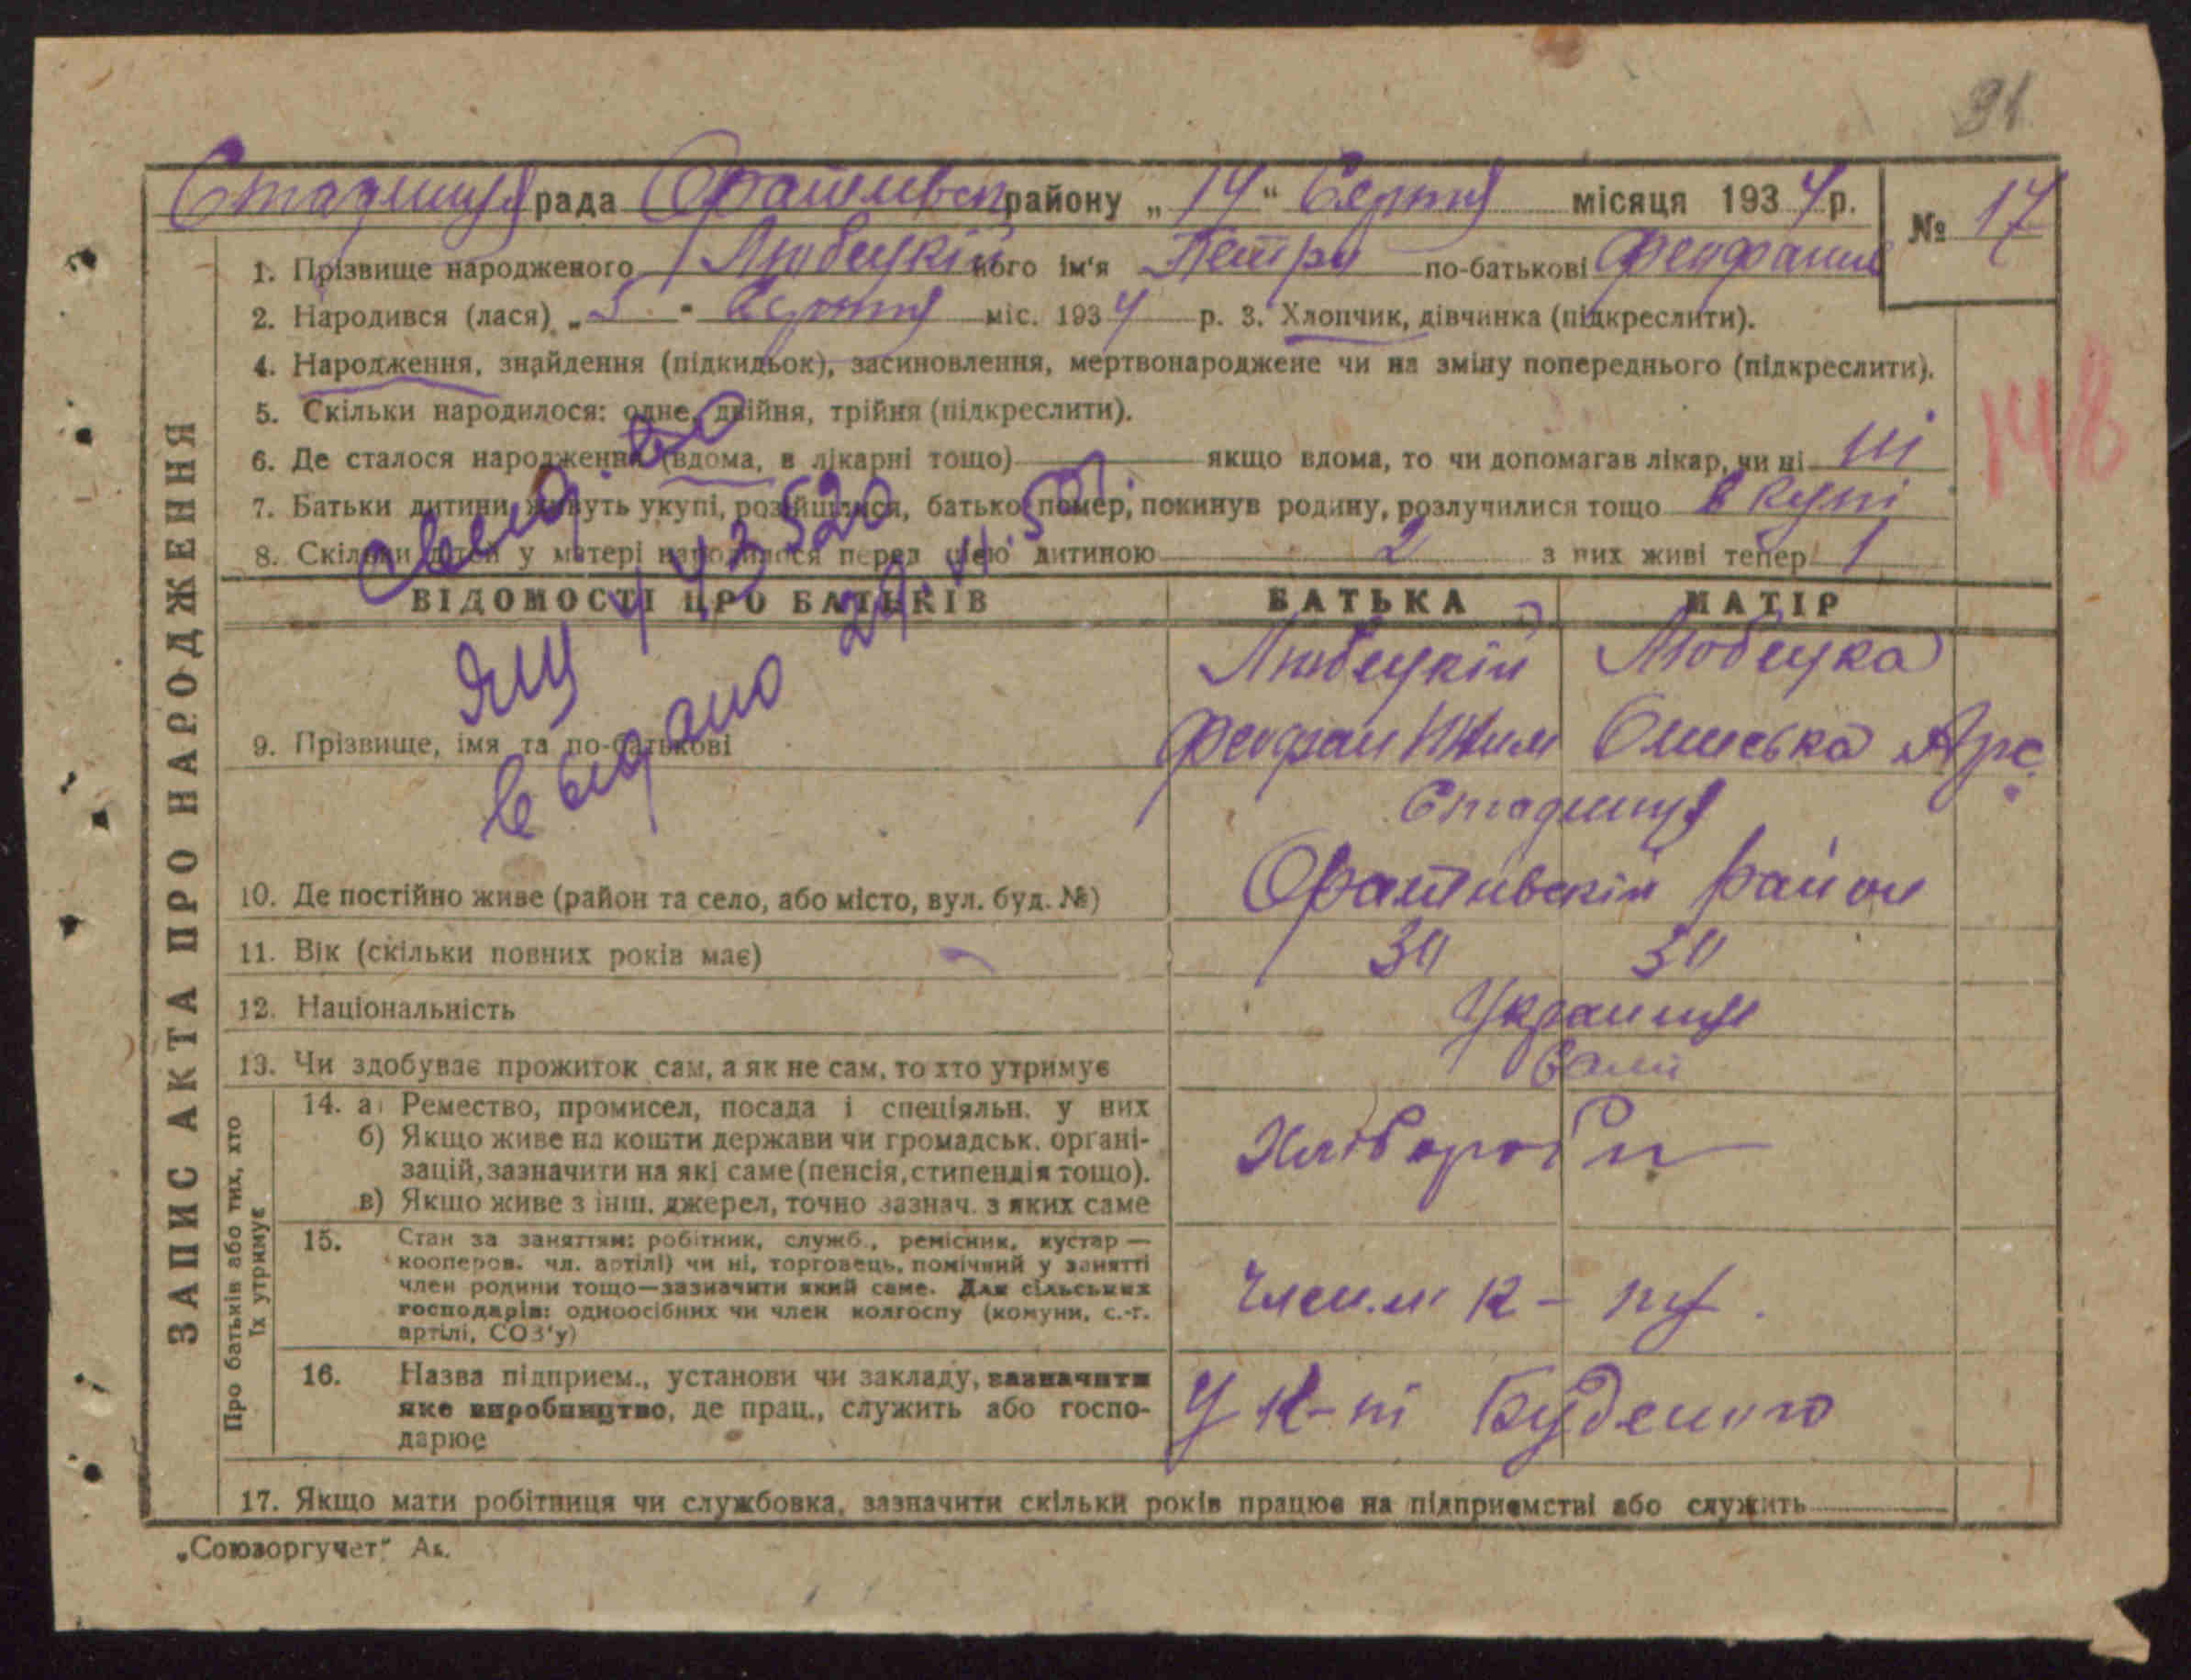 91
Стадниця рада Оратівськ району „14“ Серпня місяця 1934 р. № 17
1. Прізвище народженого Любецкій його ім'я Петро по-батькові Феофанів
2. Народився (лася) „5“ Серпня міс. 1934 р. 3. Хлопчик, дівчинка (підкреслити).
4. Народження, знайдення (підкидьок), засиновлення, мертвонароджене чи на зміну попереднього (підкреслити).
148
5. Скільки народилося: одне, двійня, трійня (підкреслити).
6. Де сталося народження (вдома, в лікарні тощо) якщо вдома, то чи допомагав лікар, чи ні ні
7. Батьки дитини живуть укупі, розійшлися, батько помер, покинув родину, розлучилися тощо в купі
8. Скільки дітей у матері народилося перед цією дитиною 2 з них живі тепер 1
Свид. во
ЯЦ 443520
выдано 29.
ВІДОМОСТІ ПРО БАТЬКІВ БАТЬКА МАТІР
Любецкій Любецка
9. Прізвище, імя та по-батькові Феофан Арс.
Стадниця
10. Де постійно живе (район та село, або місто, вул. буд. №) Оратівскій район
11. Вік (скільки повних років має) 30 30
12. Національність Украинці
13. Чи здобуває прожиток сам, а як не сам, то хто утримує Сами
14. а) Ремество, промисел, посада і спеціяльн. у них
б) Якщо живе на кошти держави чи громадськ. органі-
зацій, зазначити на які саме (пенсія, стипендія тощо).
в) Якщо живе з інш. джерел, точно зазнач. з яких саме
Хлібороби
15. Стан за заняттям: робітник, служб., ремісник, кустар —
кооперов. чл. артілі) чи ні, торговець, помічний у занятті
член родини тощо—зазначити який саме. Для сільських
господарів: одноосібних чи член колгоспу (комуни, с.-г.
артілі, СОЗ'у)
члени к-пу.
16. Назва підприєм., установи чи закладу, зазначити
яке виробництво, де прац., служить або госпо-
дарює
У к-пі Буденого
17. Якщо мати робітниця чи службовка, зазначити скільки років працює на підприємстві або служить
ЗАПИС АКТА ПРО НАРОДЖЕННЯ
Про батьків або тих, хто
їх утримує
„Союзоргучет“ Ак.